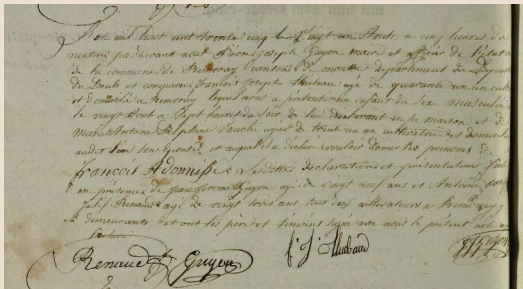 mil huit cent trente cinq le vingt un Août, à cinq heures du
matin pardevant nous Pierre Joseph Guyon maire et officier de l'état
de la commune de Remoray canton de mouthe département
du Doubs est comparu françois Joseph age de quarante un ans
et domicilié a Remoray lequel nous a présenté un enfant du sexe masculin
le vingt Août a sept heures du soir de lui déclarant en sa maison et de
Marie Antoine Delphine agée de trente un an cultivatrice et demeurant
audit lieu son épouse et auquel il a déclaré vouloir donner les prénoms de
françois Adonnisse Lesdites déclaration et présentation
en présence de Guyon agé de vingt neuf ans et
Joseph Renaud agé de vingt trois ans tous deux cultivateurs a Remoray
demeurants et ont les père et témoins signé avec nous le présent acte
lecture
Renaud Guyon
Guyon